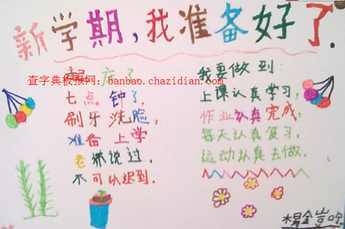 新学期，我准备好了.
查字典板报网：banbao.chazidian.com
起床了
七点钟了，
刷牙洗脸，
准备上学
老师说过，
不可以迟到.
我要做到：
上课认真学习，
作业认真完成；
每天认真复习，
运动认真去做.